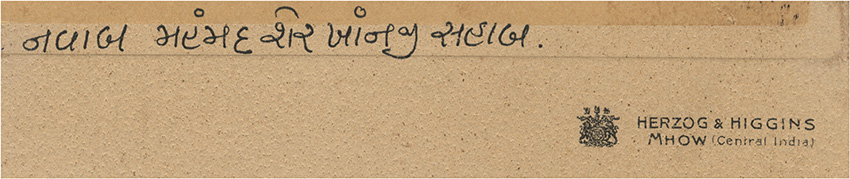 નવાબ મહંમદ શેર ખાંનજી સહાબ.
HERZOG & HIGGINS
MHOW (Central India)